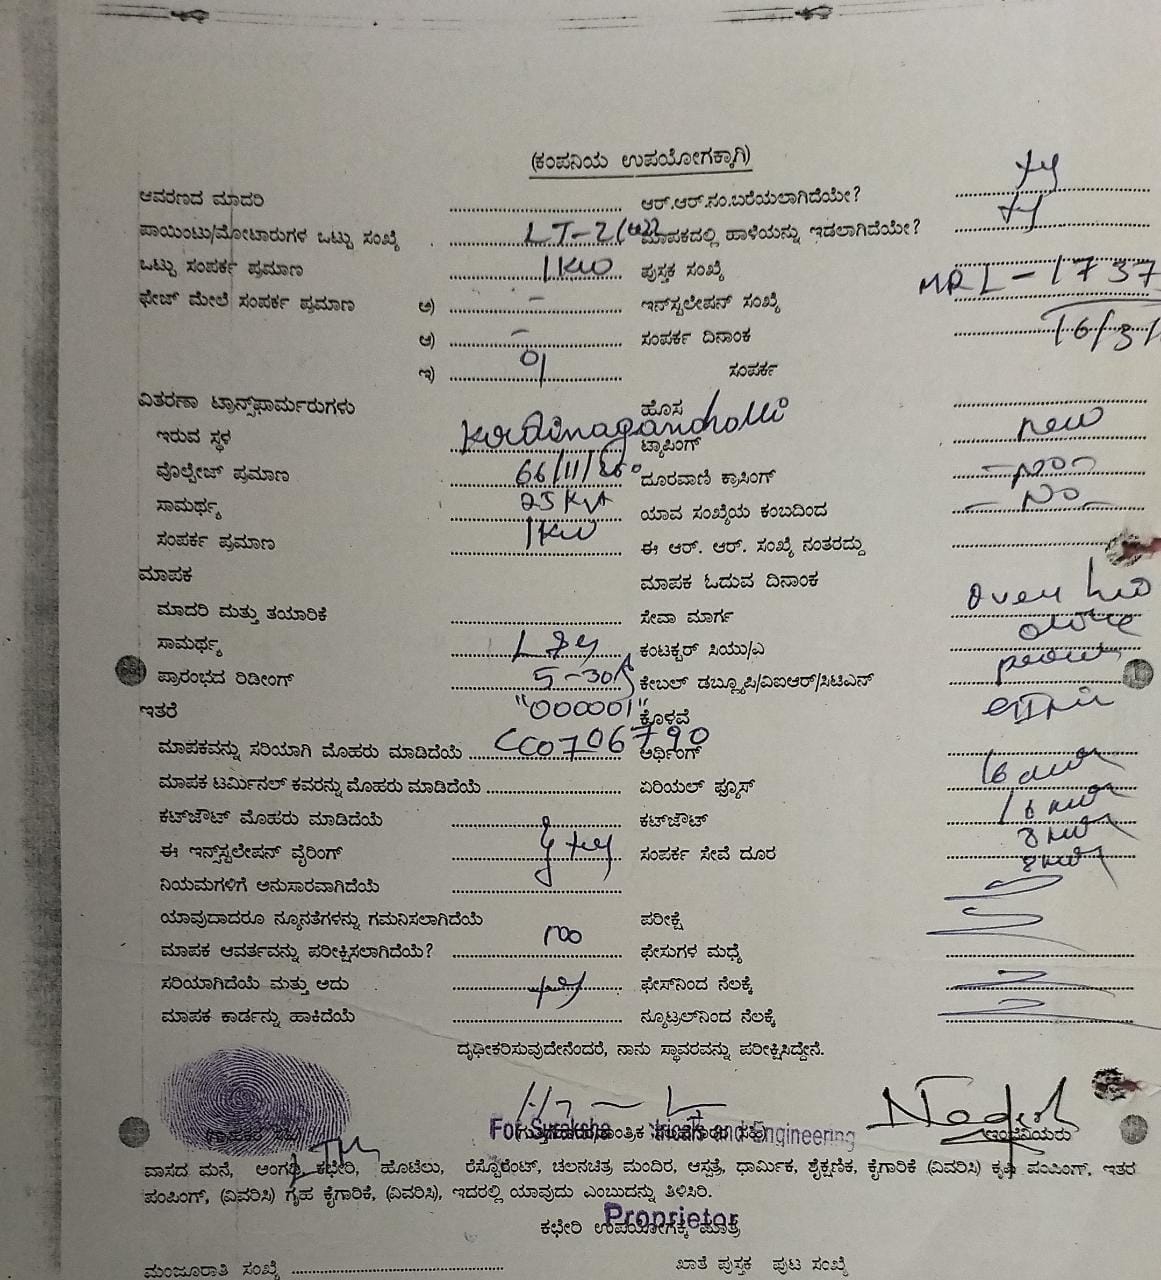 (ಕಂಪನಿಯ ಉಪಯೋಗಕ್ಕಾಗಿ)
ಆವರಣದ ಮಾದರಿ ಆರ್.ಆರ್.ನಂ.ಬರೆಯಲಾಗಿದೆಯೇ?
ಪಾಯಿಂಟು/ಮೋಟಾರುಗಳ ಒಟ್ಟು ಸಂಖ್ಯೆ LT-2 ಮಾಪಕದಲ್ಲಿ ಹಾಳೆಯನ್ನು ಇಡಲಾಗಿದೆಯೇ?
ಒಟ್ಟು ಸಂಪರ್ಕ ಪ್ರಮಾಣ 1KW ಪುಸ್ತಕ ಸಂಖ್ಯೆ
ಫೇಜ್ ಮೇಲೆ ಸಂಪರ್ಕ ಪ್ರಮಾಣ ಅ) - ಇನ್‌ಸ್ಟಲೇಷನ್ ಸಂಖ್ಯೆ MRI-1737
ಆ) - ಸಂಪರ್ಕ ದಿನಾಂಕ 16/3/
ಇ) 01 ಸಂಪರ್ಕ
ವಿತರಣಾ ಟ್ರಾನ್ಸ್‌ಫಾರ್ಮರುಗಳು ಹೊಸ new
ಇರುವ ಸ್ಥಳ ಟ್ಯಾಪಿಂಗ್
ವೊಲ್ಟೇಜ್ ಪ್ರಮಾಣ 66/11/ ದೂರವಾಣಿ ಕ್ರಾಸಿಂಗ್ -NO-
ಸಾಮರ್ಥ್ಯ 25 KVA ಯಾವ ಸಂಖ್ಯೆಯ ಕಂಬದಿಂದ -NO-
ಸಂಪರ್ಕ ಪ್ರಮಾಣ 1KW ಈ ಆರ್. ಆರ್. ಸಂಖ್ಯೆ ನಂತರದ್ದು
ಮಾಪಕ ಮಾಪಕ ಓದುವ ದಿನಾಂಕ
ಮಾದರಿ ಮತ್ತು ತಯಾರಿಕೆ ಸೇವಾ ಮಾರ್ಗ
ಸಾಮರ್ಥ್ಯ ಕಂಟಕ್ಟರ್ ಸಿಯು/ಎ
ಪ್ರಾರಂಭದ ರಿಡೀಂಗ್ 5-30 ಕೇಬಲ್ ಡಬ್ಲ್ಯೂಪಿ/ವಿಐಆರ್/ಸಿಟಿಎಸ್
ಇತರೆ "000001" ಕೊಳವೆ
ಮಾಪಕವನ್ನು ಸರಿಯಾಗಿ ಮೊಹರು ಮಾಡಿದೆಯೆ CC0706790 ಅರ್ಥಿಂಗ್
ಮಾಪಕ ಟರ್ಮಿನಲ್ ಕವರನ್ನು ಮೊಹರು ಮಾಡಿದೆಯೆ ಏರಿಯಲ್ ಫ್ಯೂಸ್
ಕಟ್‌ಔಟ್ ಮೊಹರು ಮಾಡಿದೆಯೆ ಕಟ್‌ಔಟ್
ಈ ಇನ್ಸ್‌ಸ್ಟಲೇಷನ್ ವೈರಿಂಗ್ ಸಂಪರ್ಕ ಸೇವೆ ದೂರ
ನಿಯಮಗಳಿಗೆ ಅನುಸಾರವಾಗಿದೆಯೆ
ಯಾವುದಾದರೂ ನ್ಯೂನತೆಗಳನ್ನು ಗಮನಿಸಲಾಗಿದೆಯೆ ಪರೀಕ್ಷೆ
ಮಾಪಕ ಆವರ್ತವನ್ನು ಪರೀಕ್ಷಿಸಲಾಗಿದೆಯೆ? no ಫೇಸುಗಳ ಮಧ್ಯೆ
ಸರಿಯಾಗಿದೆಯೆ ಮತ್ತು ಅದು yes ಫೇಸ್‌ನಿಂದ ನೆಲಕ್ಕೆ
ಮಾಪಕ ಕಾರ್ಡನ್ನು ಹಾಕಿದೆಯೆ ನ್ಯೂಟ್ರಲ್‌ನಿಂದ ನೆಲಕ್ಕೆ
ದೃಢೀಕರಿಸುವುದೇನೆಂದರೆ, ನಾನು ಸ್ಥಾವರವನ್ನು ಪರೀಕ್ಷಿಸಿದ್ದೇನೆ.
For and Engineering ಇಂಜಿನಿಯರು
ವಾಸದ ಮನೆ, ಅಂಗಡಿ, ಕಛೇರಿ, ಹೊಟೆಲು, ರೆಸ್ಟೊರೆಂಟ್, ಚಲನಚಿತ್ರ ಮಂದಿರ, ಆಸ್ಪತ್ರೆ, ಧಾರ್ಮಿಕ, ಶೈಕ್ಷಣಿಕ, ಕೈಗಾರಿಕೆ (ವಿವರಿಸಿ) ಕೃಷಿ ಪಂಪಿಂಗ್, ಇತರ
ಪಂಪಿಂಗ್, (ವಿವರಿಸಿ) ಗೃಹ ಕೈಗಾರಿಕೆ, (ವಿವರಿಸಿ), ಇದರಲ್ಲಿ ಯಾವುದು ಎಂಬುದನ್ನು ತಿಳಿಸಿರಿ.
Proprietor
ಕಛೇರಿ ಉಪಯೋಗಕ್ಕೆ ಮಾತ್ರ
ಮಂಜೂರಾತಿ ಸಂಖ್ಯೆ ಖಾತೆ ಪುಸ್ತಕ ಪುಟ ಸಂಖ್ಯೆ